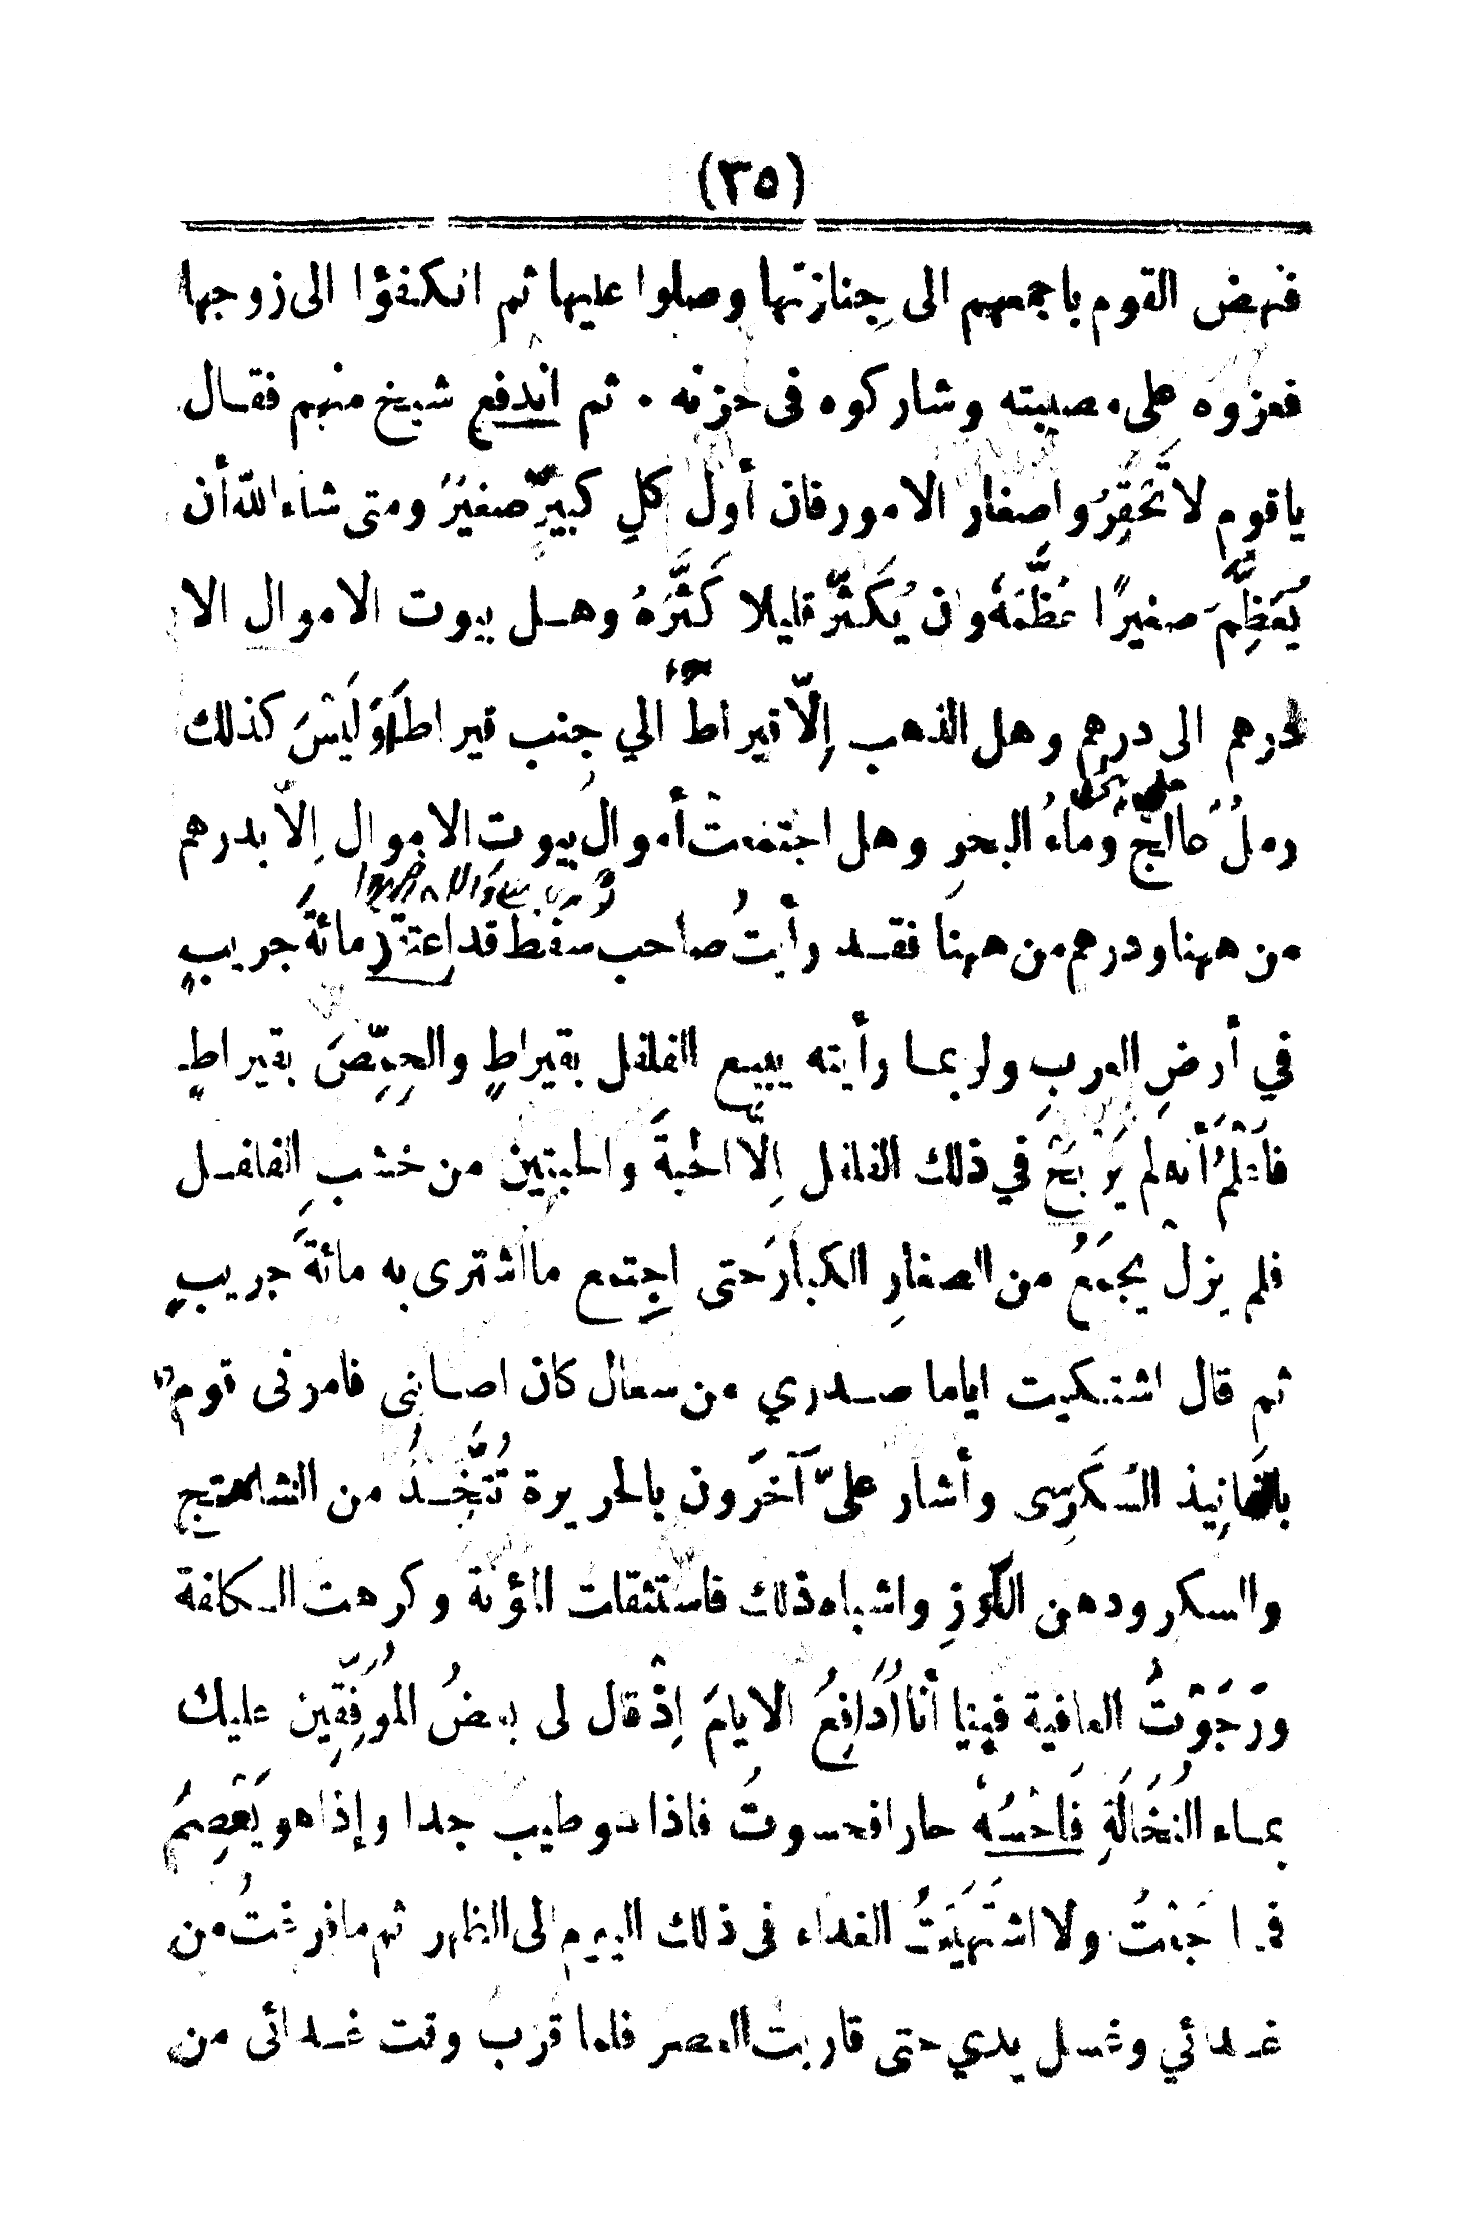 (٣٥)
فنهض القوم باجمعهم الى جنازتها وصلوا عليها ثم انكفؤا الى زوجها
فعزوه على مصيبته وشاركوه فى حزنه ٠ ثم اندفع شيخ منهم فقال
ياقوم لا تَحْقِرُوا صغار الامور فان أول كلِ كبيرٍ صغيرُ ومتى شاء الله أن
يُعَظِّمَ صغيرًا عَظَّمَهُ وان يُكَثِّرَ قليلا كَثَّرَهُ وهل بيوت الاموال الا
درهم الى درهم وهل الذهب إلّا قيراطٌ الي جنب قيراط وَلَيْسَ كذلك
رملُ عالج وماءُ البحرِ وهل اجتمعتْ أموالُ بيوتِ الاموال إلّا بدرهم
من ههنا ودرهم من ههنا فقد رأيتُ صاحب سَفَط قد اعتقد مائةَ جريبٍ
في أرضِ العربِ ولربما رأيته يبيع الفلفل بقيراطٍ والحِمِّصَ بقيراطٍ
فأعلمُ أنه لم يَرْبَحْ في ذلك الفلفل إلّا الحبةَ والحبتين من خشبِ الفلفل
فلم يزلْ يجمَعُ من الصغارِ الكبارَ حتى اجتمع ما اشترى به مائةَ جريبٍ
ثم قال اشتكيت اياما صدري من سعال كان اصابنى فامرنى قوم
بالفانِيذ السكَرِى وأشار علىّ آخَرون بالحريرة تُتَّخَذُ من النشاستج
والسكر ودهن اللوزِ واشباه ذلك فاستثقلت المؤنة وكرهت الكلفة
ورَجَوْتُ العافية فبينا أنا أُدَافِعُ الايامَ إذْ قال لى بعضُ المُوَفَّقِين عليك
بماء النُّخَالَةِ فَاحْسُهُ حارا فحسوتُ فاذا هو طيب جدا وإذا هو يَعْصِمُ
فما جُعْتُ ولا اشْتَهَيْتُ الغداء فى ذلك اليوم الى الظهر ثم ما فرغتُ من
غدائي وغسل يدي حتى قاربتُ العصر فلما قرُبَ وقت غدائى من